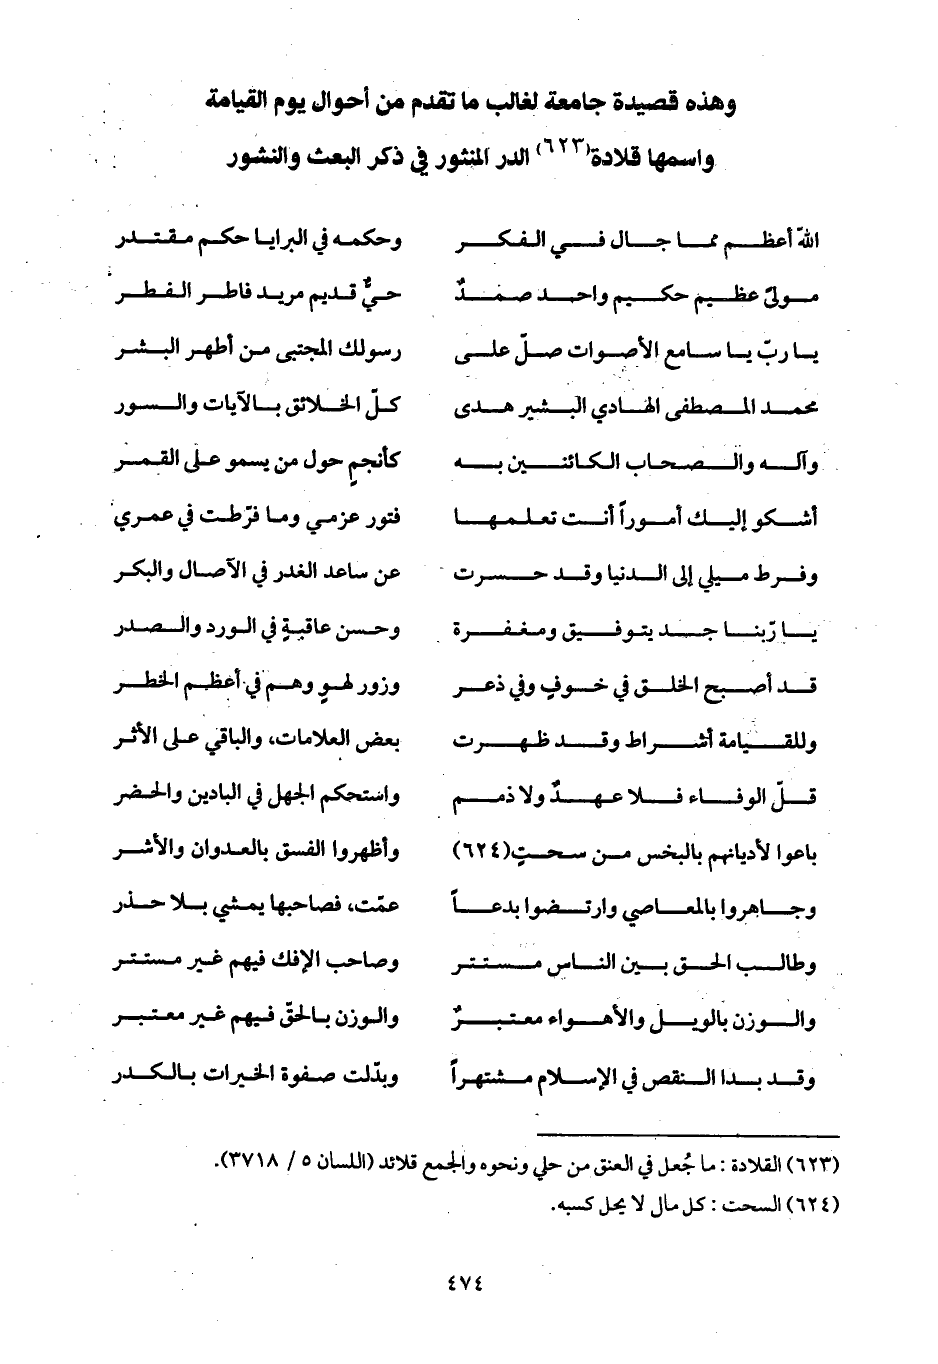 وهذه قصيدة جامعة لغالب ما تقدم من أحوال يوم القيامة
واسمها قلادة(٦٢٣) الدر المنثور في ذكر البعث والنشور
الله أعظم مما جال في الفكر وحكمه في البرايا حكم مقتدر
مولىً عظيم حكيم واحد صمدٌ حيٌّ قديم مريد فاطر الفطر
يا ربّ يا سامع الأصوات صلّ على رسولك المجتبى من أطهر البشر
محمد المصطفى الهادي البشير هدى كلّ الخلائق بالآيات والسور
وآله والصحاب الكائنين به كأنجمٍ حول من يسمو على القمر
أشكو إليك أموراً أنت تعلمها فتور عزمي وما فرّطت في عمري
وفرط ميلي إلى الدنيا وقد حسرت عن ساعد الغدر في الآصال والبكر
يا ربّنا جد بتوفيق ومغفرة وحسن عاقبةٍ في الورد والصدر
قد أصبح الخلق في خوفٍ وفي ذعر وزور لهوٍ وهم في أعظم الخطر
وللقيامة أشراط وقد ظهرت بعض العلامات، والباقي على الأثر
قلّ الوفاء فلا عهدٌ ولا ذمم واستحكم الجهل في البادين والحضر
باعوا لأديانهم بالبخس من سحتٍ(٦٢٤) وأظهروا الفسق بالعدوان والأشر
وجاهروا بالمعاصي وارتضوا بدعاً عمّت، فصاحبها يمشي بلا حذر
وطالب الحق بين الناس مستتر وصاحب الإفك فيهم غير مستتر
والوزن بالويل والأهواء معتبرٌ والوزن بالحقّ فيهم غير معتبر
وقد بدا النقص في الإسلام مشتهراً وبدّلت صفوة الخيرات بالكدر
(٦٢٣) القلادة : ما جُعل في العنق من حلي ونحوه والجمع قلائد (اللسان ٥ / ٣٧١٨).
(٦٢٤) السحت : كل مال لا يحل كسبه.
٤٧٤